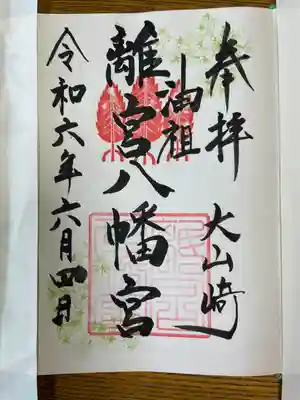 奉拝
大山崎
油祖
離宮八幡宮
令和六年六月四日